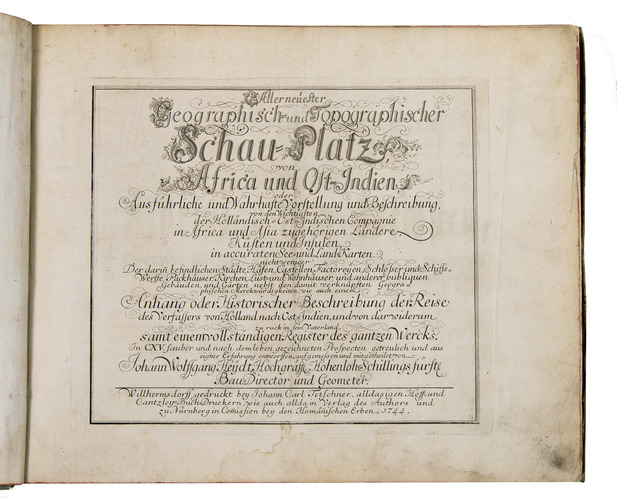 Allerneuester
Geographisch- und Topographischer
Schau-Platz,
von
Africa und Ost-Indien,
oder
Ausführliche und Wahrhafte Vorstellung und Beschreibung,
von den Wichtigsten
der Holländisch-Ost-Indischen Compagnie
in Africa und Asia zugehörigen Ländere,
Küsten und Insulen,
in accuraten See- und Land Karten,
nicht weniger
Der darin befindlichen Städte, Häfen, Castellen, Factoreyen, Schlösser und Schiffs-
Werffe, Packhäuser, Kirchen, Lust- und Wohnhäuser, und anderer publiquen
Gebäuden, und Gärten nebst den damit verknüpften Geogra-
phischen Merckwürdigkeiten, wie auch einem
Anhang oder Historischer Beschreibung der Reise
des Verfassers von Holland nach Ost-Indien, und von dar widerum
zu ruck in sein Vaterland,
samt einem vollständigen Register des gantzen Wercks.
In CXV. sauber und nach dem leben gezeichneten Prospecten getreulich und aus
eigner Erfahrung entworffen, aufgemessen und mitgetheilet von
Johann Wolffgang Heydt, Hochgräfl. Hohenloh-Schillingsfürstl.
Bau-Director und Geometer.
Willhermsdorff, gedruckt bey Johann Carl Tetschner, alldasigen Hoff- und
Cantzley-Buch-Druckern, wie auch allda in Verlag des Authors und
zu Nürnberg in Com̄ission bey den Homännischen Erben. 1744.